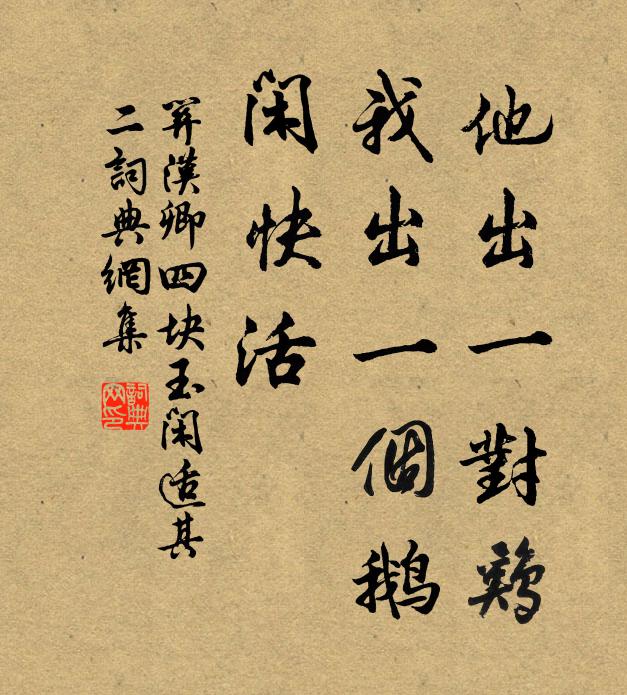 他出一對鷄
我出一個鵝
閑快活
關漢卿四块玉閑适其
二詞典網集
詞典网印